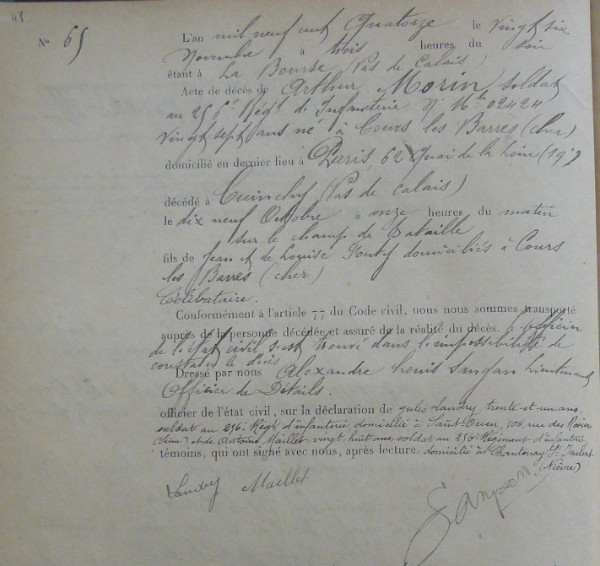 48
N° 65
L'an mil neuf cent Quatorze le vingt six
Novembre à trois heures du soir
étant à La Bourse (Pas de Calais)
Acte de décès de Arthur Morin, soldat
au 256e Régt de Infanterie N° Mle 02424
vingt sept ans né à Cours les Barres (cher)
domicilié en dernier lieu à Paris, 62 Quai de la
décédé à Cuinchy (Pas de Calais)
le dix neuf Octobre à onze heures du matin
sur le champ de bataille
fils de Jean et de Louise domiciliés à Cours
les Barres (cher)
Célibataire.
Conformément à l'article 77 du Code civil, nous nous sommes transporté
auprès de la personne décédée et assuré de la réalité du décès. l'officier
de l'état civil s'est trouvé dans l'impossibilité de
constater le décès
Dressé par nous Alexandre Louis lieutenant
Officier de Détails.
officier de l'état civil, sur la déclaration de Jules Landry trente et un ans
soldat au 256e Régt d'infanterie domicilié à Saint-Ouen, 106, rue des Rosiers
(Seine) et de Antoine Maillet vingt huit ans soldat au 256e Régiment d'infanterie
témoins, qui ont signé avec nous, après lecture. domicilié à Chantenay St Imbert
(Nièvre)
Landry Maillet